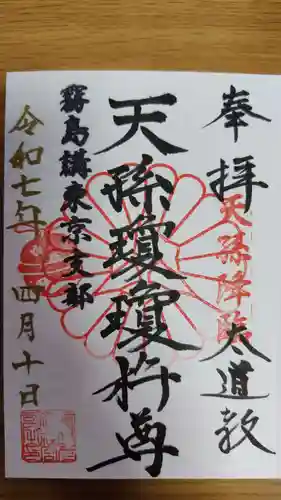 奉拝
天孫降臨
太道教
天孫瓊瓊杵尊
霧島講東京支部
令和七年四月十日